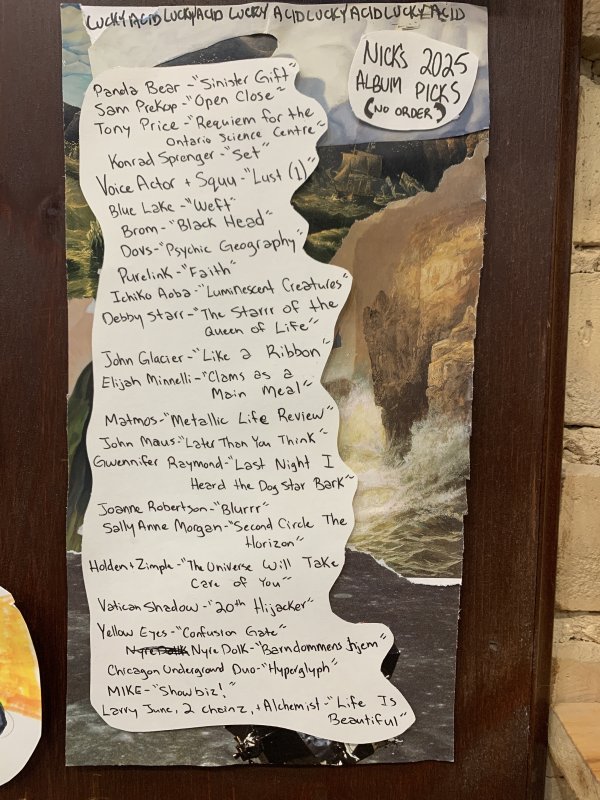 LUCKY ACID LUCKY ACID LUCKY ACID LUCKY ACID LUCKY ACID
NICK'S 2025
ALBUM PICKS
(NO ORDER)
Panda Bear - "Sinister Gift"
Sam Prekop - "Open Close"
Tony Price - "Requiem for the
Ontario Science Centre"
Konrad Sprenger - "Set"
Voice Actor + Squu - "Lust (1)"
Blue Lake - "Weft"
Brom - "Black Head"
Dovs - "Psychic Geography"
Purelink - "Faith"
Ichiko Aoba - "Luminescent Creatures"
Debby Starr - "The Starrr of the
Queen of Life"
John Glacier - "Like a Ribbon"
Elijah Minnelli - "Clams as a
Main Meal"
Matmos - "Metallic Life Review"
John Maus - "Later Than You Think"
Gwennifer Raymond - "Last Night I
Heard the Dog Star Bark"
Joanne Robertson - "Blurrr"
Sally Anne Morgan - "Second Circle The
Horizon"
Holden + Zimple - "The Universe Will Take
Care of You"
Vatican Shadow - "20th Hijacker"
Yellow Eyes - "Confusion Gate"
Nyre Dolk - "Barndommens hjem"
Chicagon Underground Duo - "Hyperglyph"
MIKE - "Showbiz!"
Larry June, 2 chainz, + Alchemist - "Life Is
Beautiful"